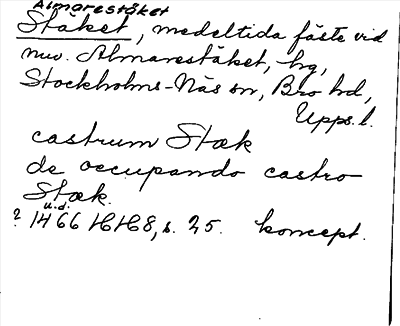 Almarestäket
Stäket, medeltida fäste vid
nuv. Almarestäket, hg,
Stockholms-Näs sn, Bro hd,
Upps. l.
castrum Stæk
de occupando castro
Stæk.
u.d.
? 1466 HH8, s. 25. koncept.